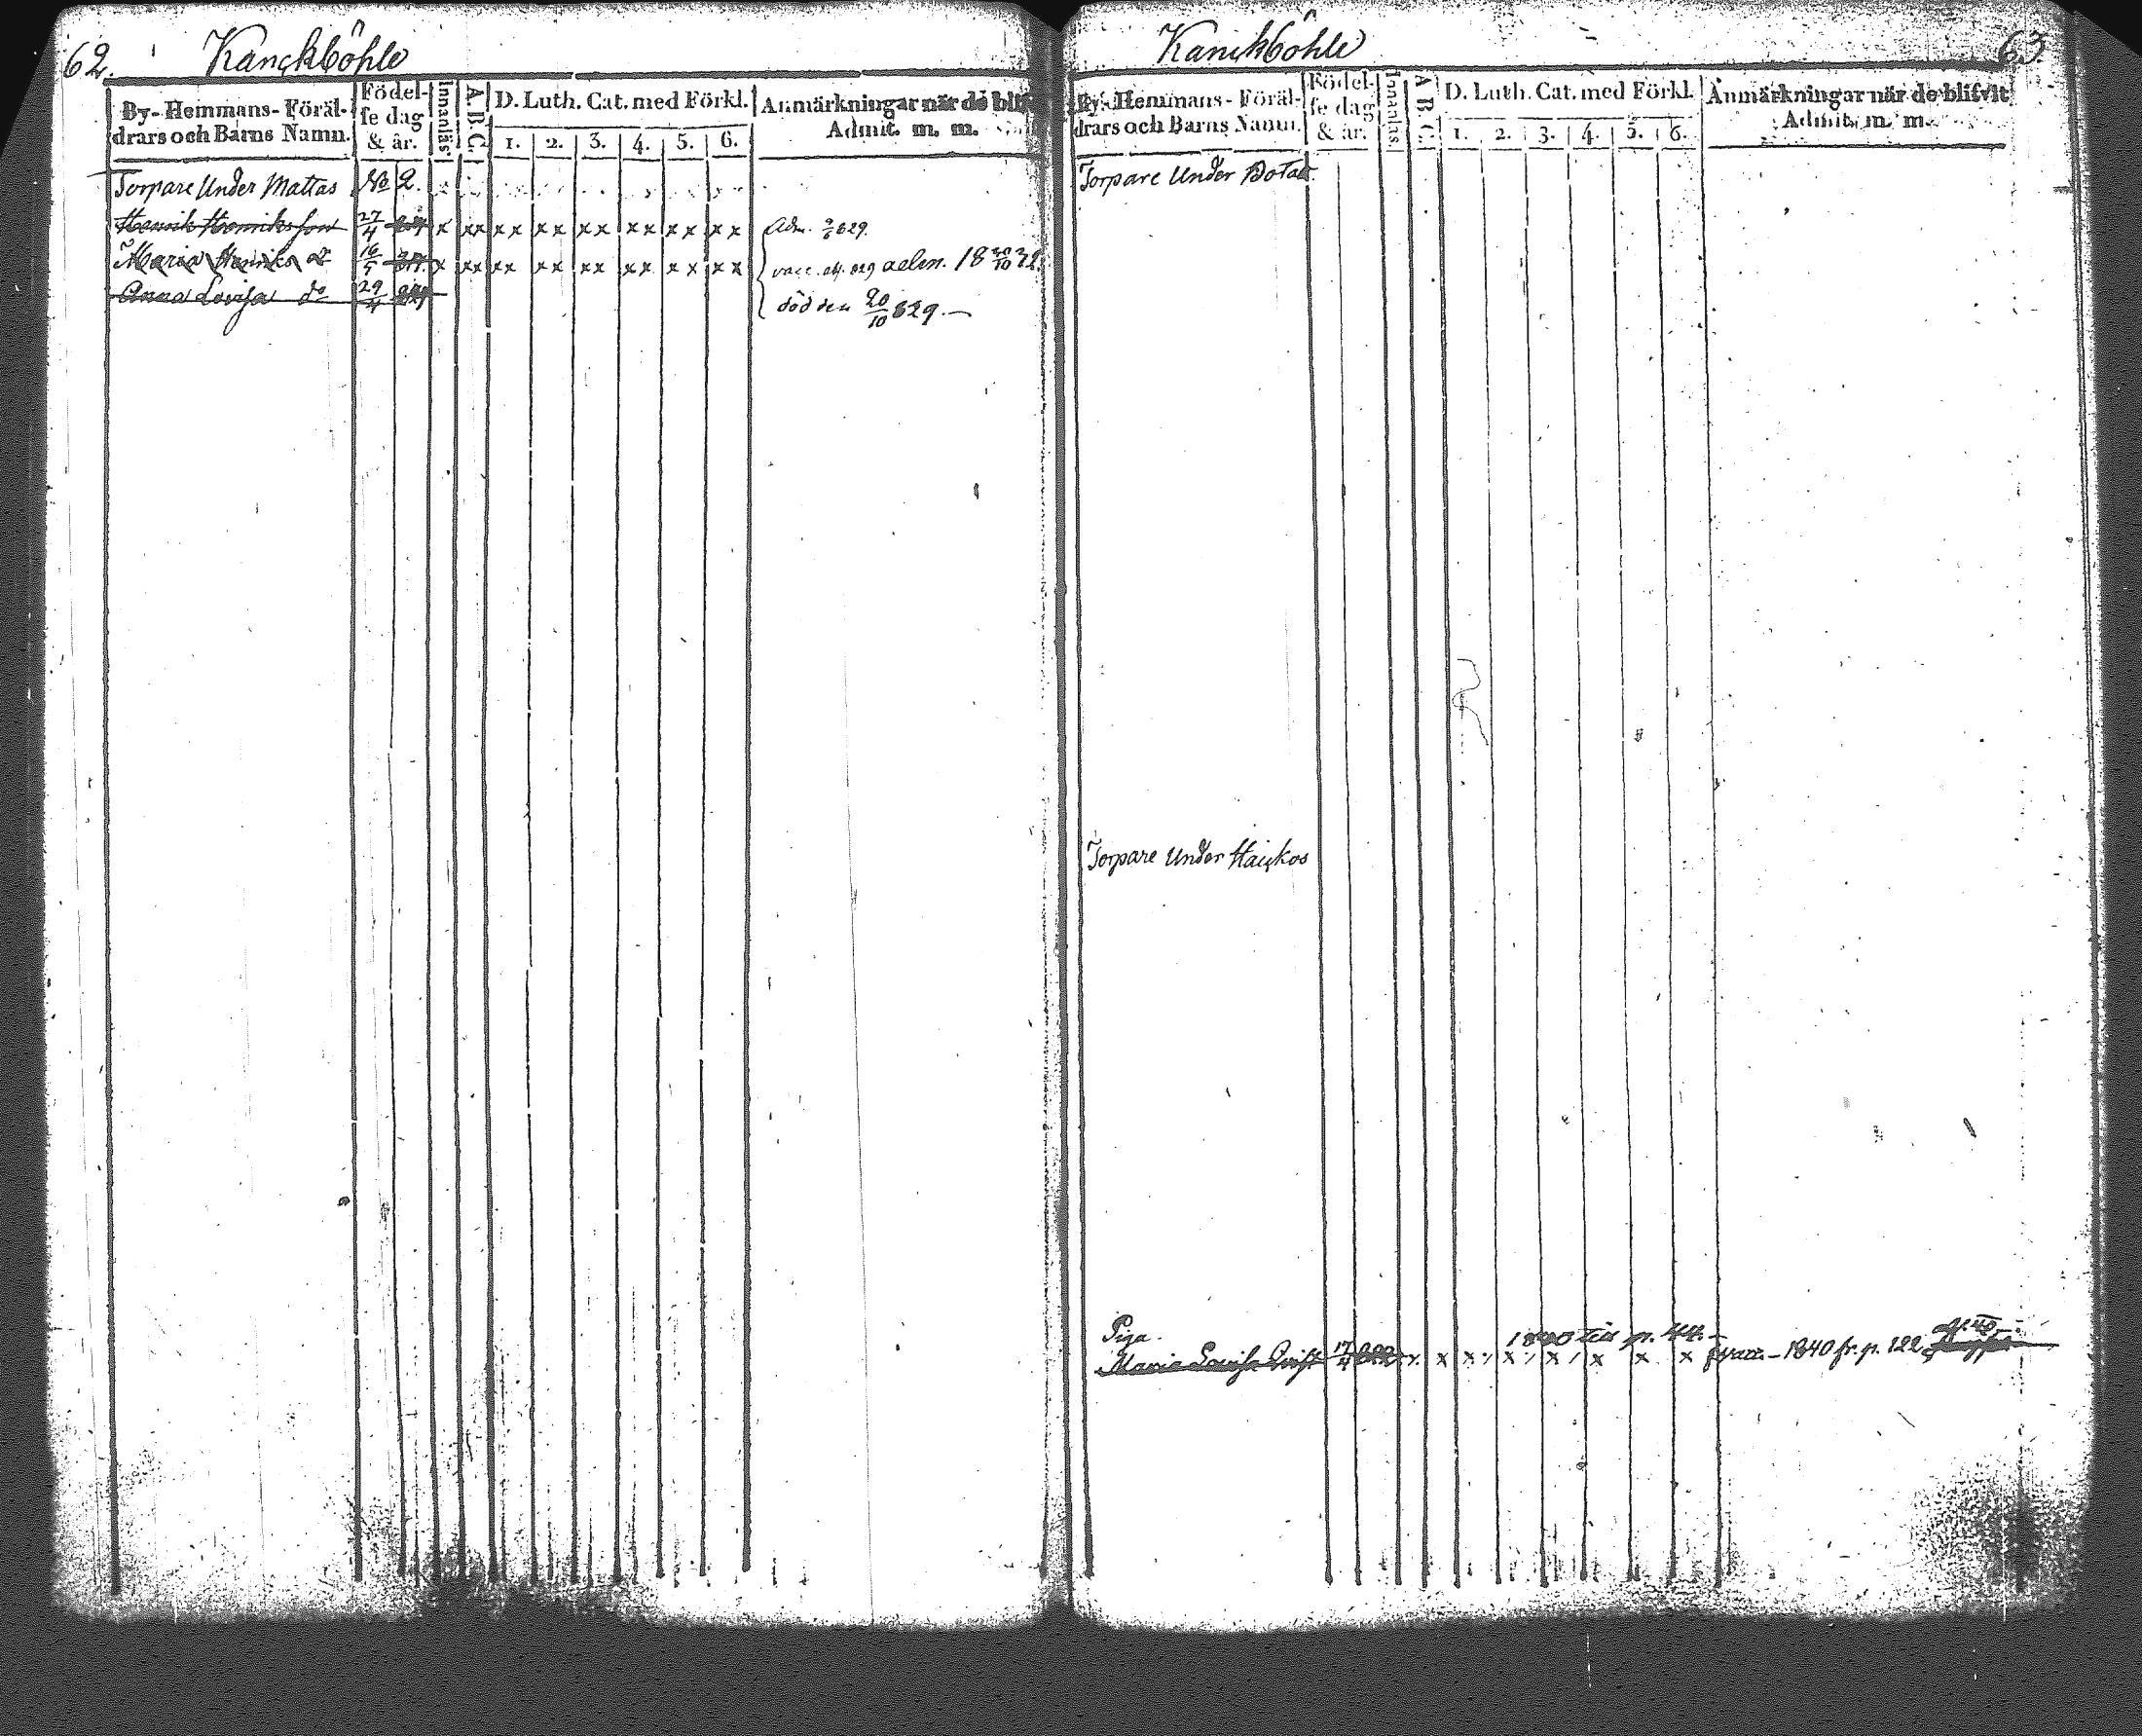 62. Kanckböhle
By- Hemmans- Föräl-
drars och Barns Namn.
Födel-
se dag
& år.
Innanläs.
A.B.C.
D. Luth. Cat. med Förkl.
1. 2. 3. 4. 5. 6.
Anmärkningar när de blif
Admit. m. m.
Torpare Under Mattas No 2.
Henrik Henriksson 27/4 x xx xx xx xx xx xx xx Adm. 829.
Maria Henriks d 16/5 x xx xx xx xx xx xx xx vacc. adm. 18
Anna Lovisa do 29/4 död den 20/10 829.
Kanckböhle 63
By- Hemmans- Föräl-
drars och Barns Namn.
Födel-
se dag
& år.
Innanläs.
A.B.C.
D. Luth. Cat. med Förkl.
1. 2. 3. 4. 5. 6.
Anmärkningar när de blifvit
Admit. m. m.
Torpare Under Botas
Torpare Under Haickos
Piga. 1840 till p. 44.
Maria Lovisa Qvist 17 822 x x x x x x x x vacc. 1840 fr. p. 122